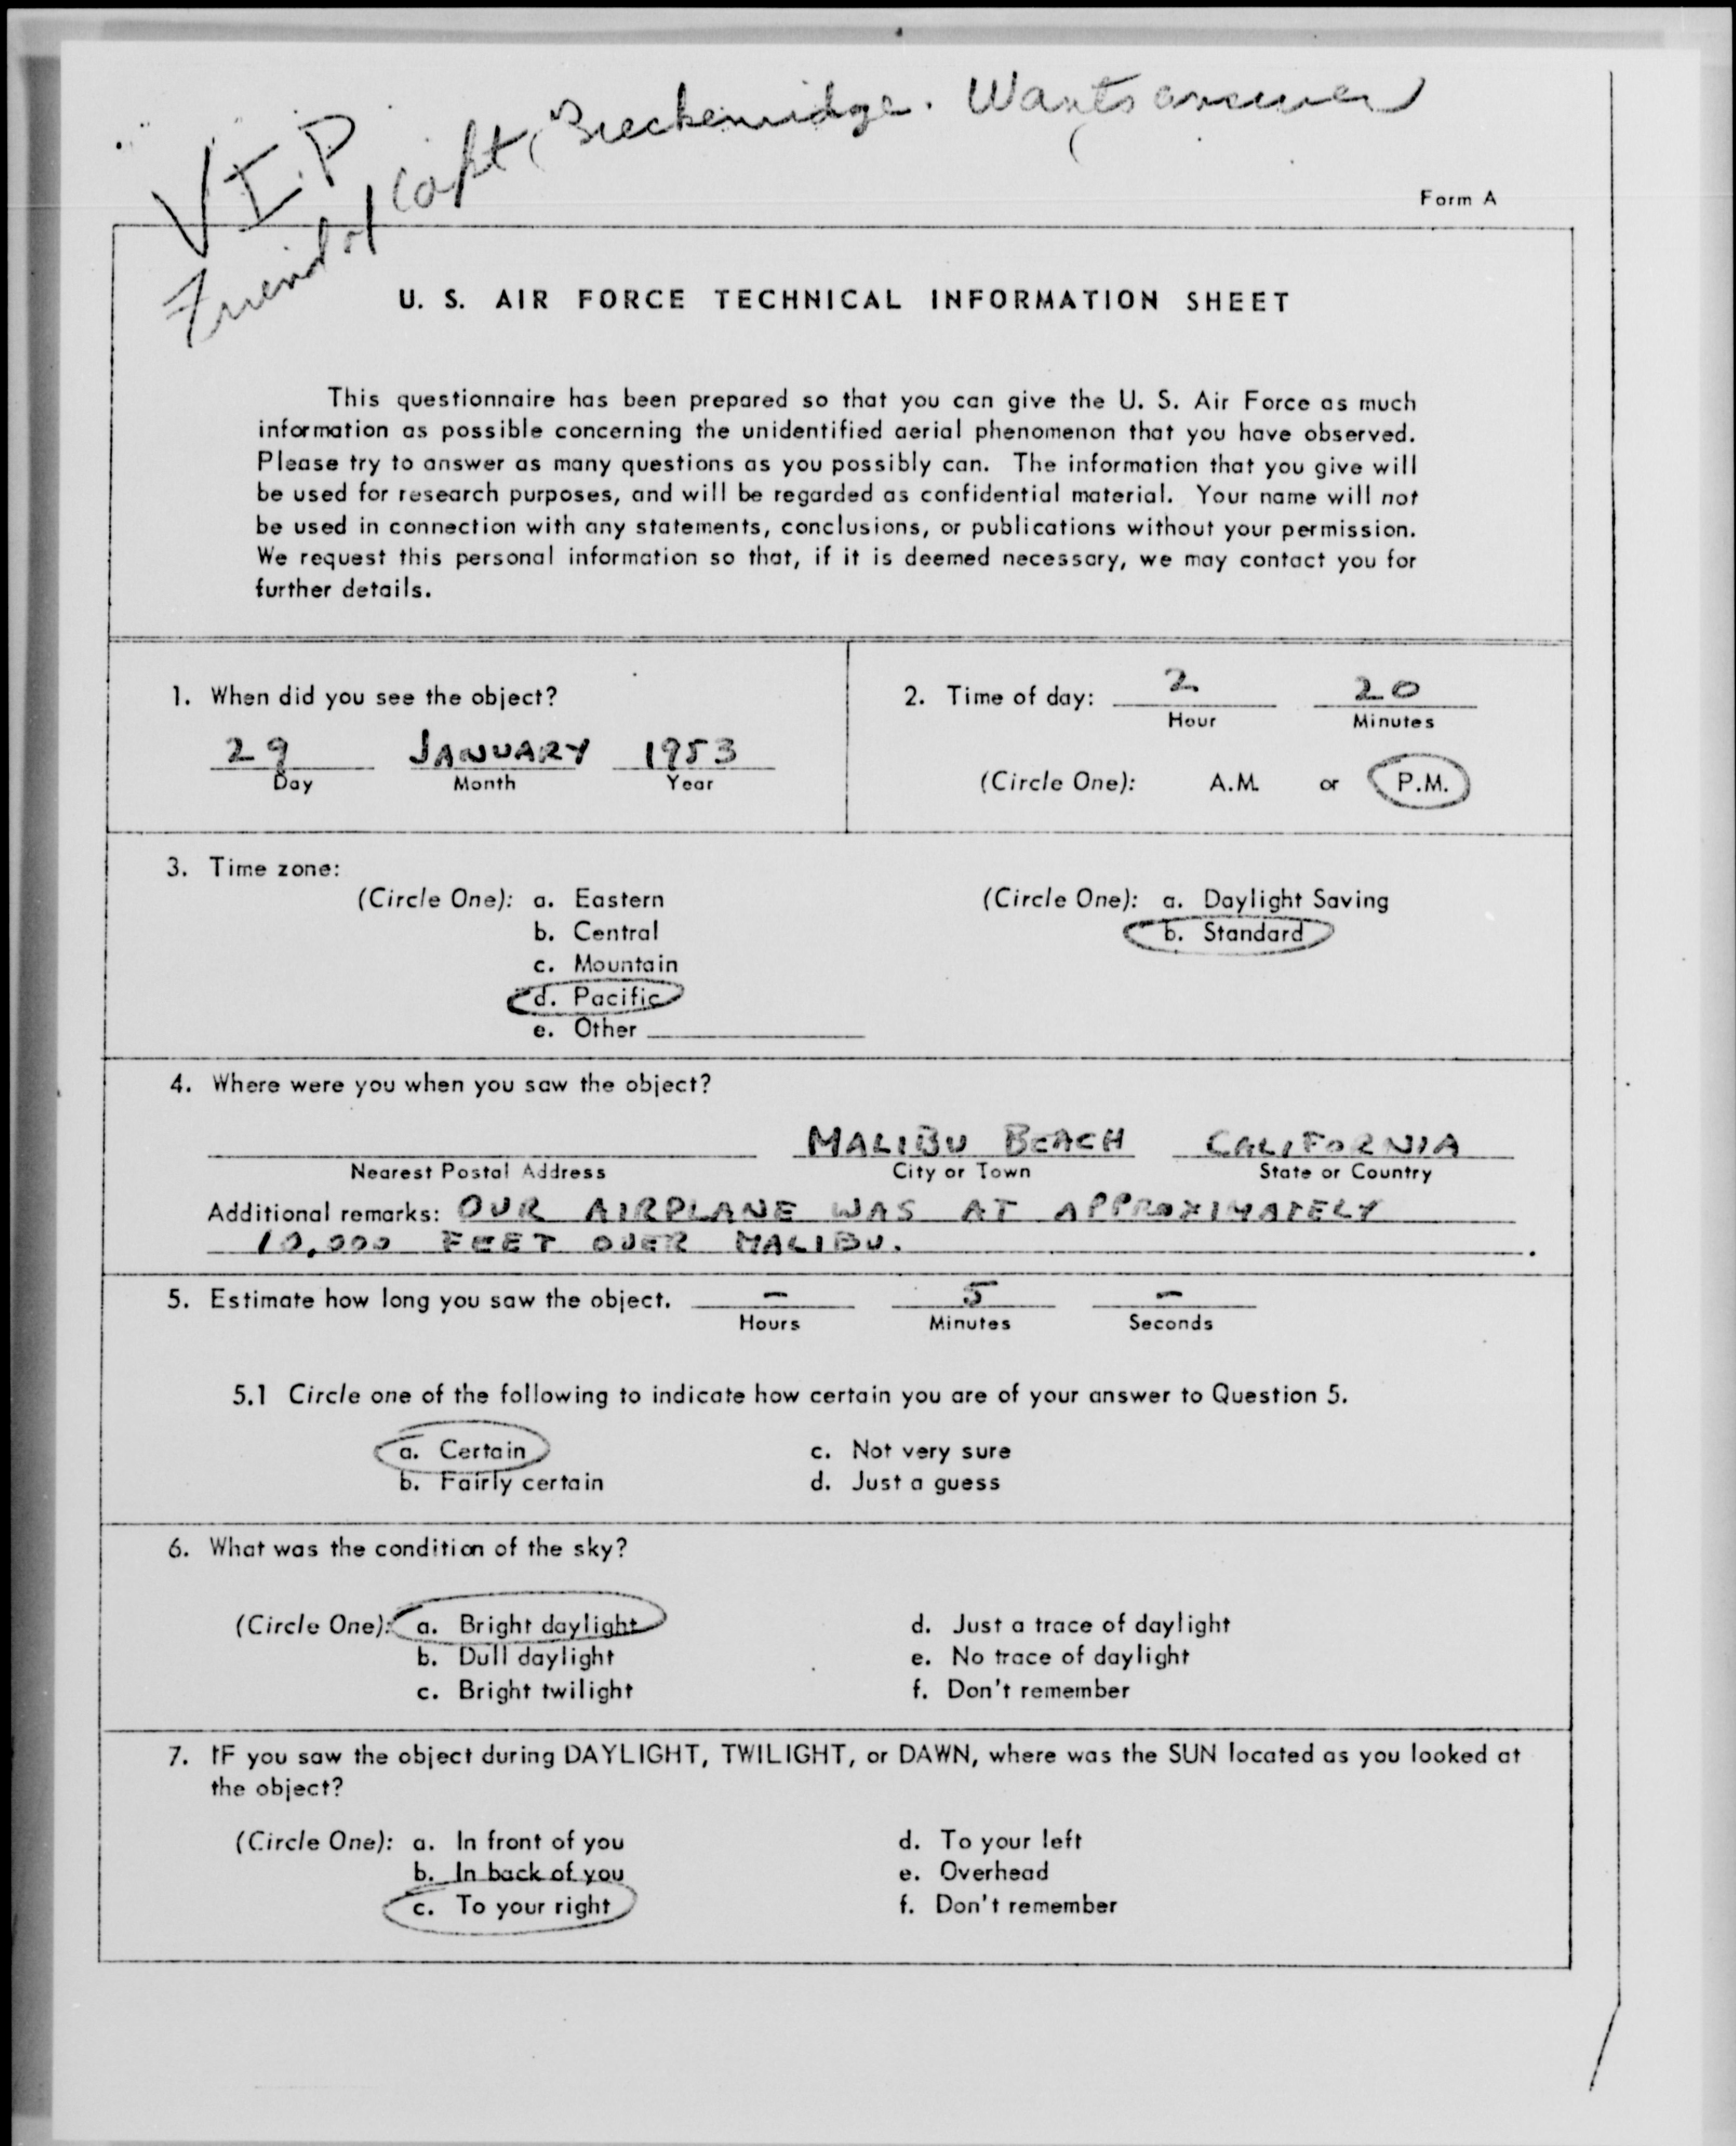 V.I.P
Friend of Capt. Breckenridge. Wants answer
Form A
U. S. AIR FORCE TECHNICAL INFORMATION SHEET
This questionnaire has been prepared so that you can give the U. S. Air Force as much
information as possible concerning the unidentified aerial phenomenon that you have observed.
Please try to answer as many questions as you possibly can. The information that you give will
be used for research purposes, and will be regarded as confidential material. Your name will not
be used in connection with any statements, conclusions, or publications without your permission.
We request this personal information so that, if it is deemed necessary, we may contact you for
further details.
1. When did you see the object?
29 JANUARY 1953
Day Month Year
2. Time of day: 2 20
Hour Minutes
(Circle One): A.M. or P.M.
3. Time zone:
(Circle One): a. Eastern
b. Central
c. Mountain
d. Pacific
e. Other
(Circle One): a. Daylight Saving
b. Standard
4. Where were you when you saw the object?
MALIBU BEACH CALIFORNIA
Nearest Postal Address City or Town State or Country
Additional remarks: OUR AIRPLANE WAS AT APPROXIMATELY
10,000 FEET OVER MALIBU.
5. Estimate how long you saw the object. - 5 -
Hours Minutes Seconds
5.1 Circle one of the following to indicate how certain you are of your answer to Question 5.
a. Certain
b. Fairly certain
c. Not very sure
d. Just a guess
6. What was the condition of the sky?
(Circle One): a. Bright daylight
b. Dull daylight
c. Bright twilight
d. Just a trace of daylight
e. No trace of daylight
f. Don't remember
7. IF you saw the object during DAYLIGHT, TWILIGHT, or DAWN, where was the SUN located as you looked at
the object?
(Circle One): a. In front of you
b. In back of you
c. To your right
d. To your left
e. Overhead
f. Don't remember